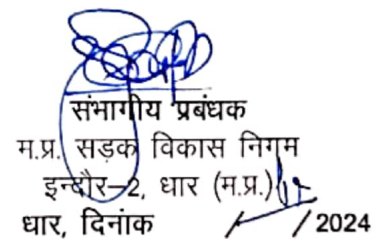 संभागीय प्रबंधक
म.प्र. सड़क विकास निगम
इन्दौर–2, धार (म.प्र.)
धार, दिनांक / / 2024